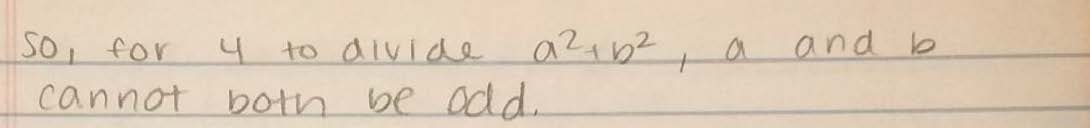 so, for 4 to divide a²+b², a and b
cannot both be odd.